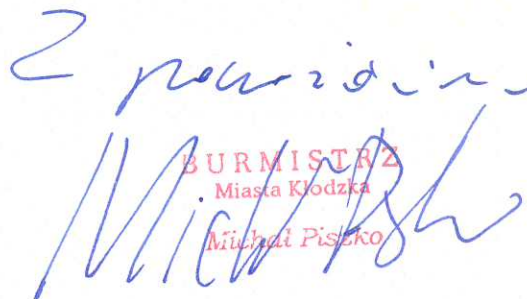 Z poważaniem
BURMISTRZ
Miasta Kłodzka
Michał Piszko